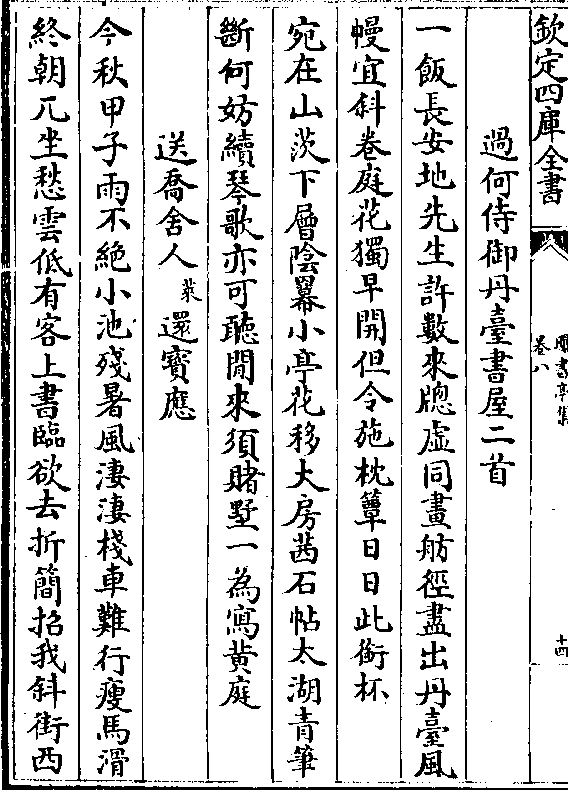 欽定四庫全書
曝書亭集
卷八
十四
過何侍御丹臺書屋二首
一飯長安地先生許數來牕虛同畫舫徑盡出丹臺風
幔宜斜卷庭花獨早開但令施枕簟日日此銜杯
宛在山茨下層陰羃小亭花移大房茜石帖太湖青筆
斷何妨續琴歌亦可聽閒來須賭墅一為寫黄庭
送喬舍人萊還寶應
今秋甲子雨不絶小池殘暑風淒淒棧車難行瘦馬滑
終朝兀坐愁雲低有客上書臨欲去折簡招我斜街西